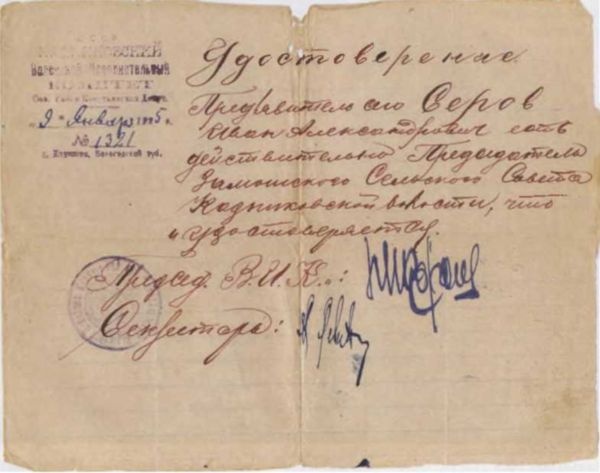 СССР
КАДНИКОВСКИЙ
Волостной Исполнительный
КОМИТЕТ
Сов. Раб. и Крестьянских Депут.
„9" Января 1925 г.
№ 1321
г. Кадников, Вологодской губ.
Удостоверение.
Предъявитель сего Серов
Иван Александрович есть
действительно Председатель
Замошского Сельского Совета
Кадниковской волости, что
и удостоверяется.
Председ. В.И.К.:
Секретарь: